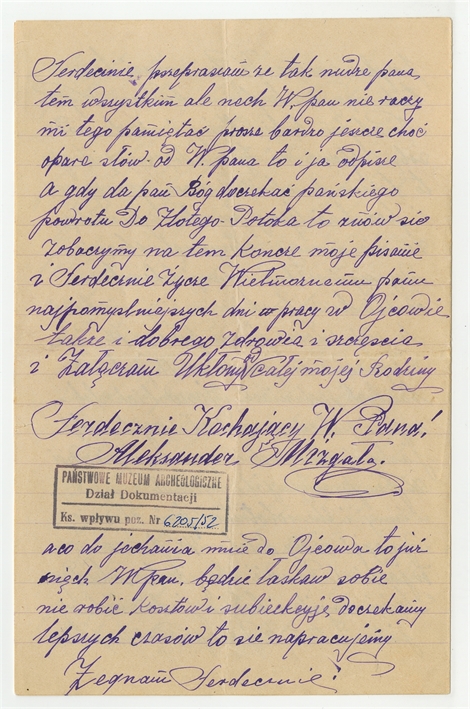 Serdecinie, przepraszam ze tak nudze pana
tem wszystkim ale nech W. pan nie raczy
mi tego pamiętać prosze bardzo jeszcze choć
opare słów od W. pana to i ja odpisze
a gdy da pan Bóg doczekać pańskiego
powrotu Do Złotego-Potoka to znów sie
zobaczymy na tem koncze moje pisanie
i Serdecznie Zycze Wielmoznemu panu
najpomyslniejszych dni w pracy w Ojcowie
także i dobrego zdrowia i szczęscia
i Załączam Ukłony od całej mojej Rodziny
Serdecznie Kochający W. Pana!
Aleksander Mrzgała.
PAŃSTWOWE MUZEUM ARCHEOLOGICZNE
Dział Dokumentacji
Ks. wpływu poz. Nr 6205/52
a co do jechania mnie do Ojcowa to już
niech W. pan, będzie łaskaw sobie
nie robić kosztów i subiekcyje, doczekamy
lepszych czasów to sie napracujemy
Zegnam Serdecznie!